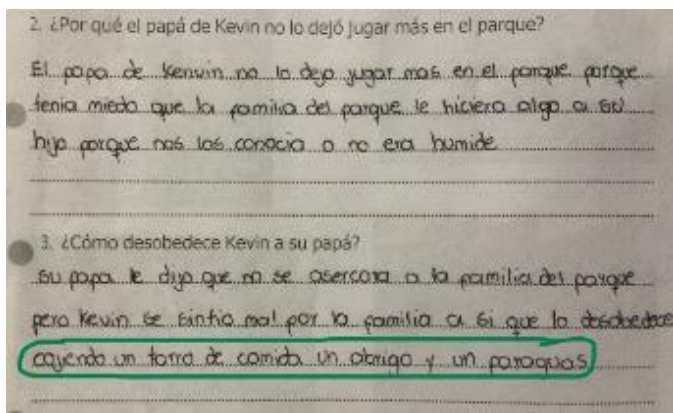 2. ¿Por qué el papá de Kevin no lo dejó jugar más en el parque?
El papa de Kenvin no lo dejo jugar mas en el parque porque
tenia miedo que la familia del parque le hiciera algo a su
hijo porque nos los conocia o no era humide
3. ¿Cómo desobedece Kevin a su papá?
su papa le dijo que no se asercora a la familia del parque
pero Kevin se sintio mal por la familia a si que lo desobedece
cojendo un torro de comida un abrigo y un paraguas